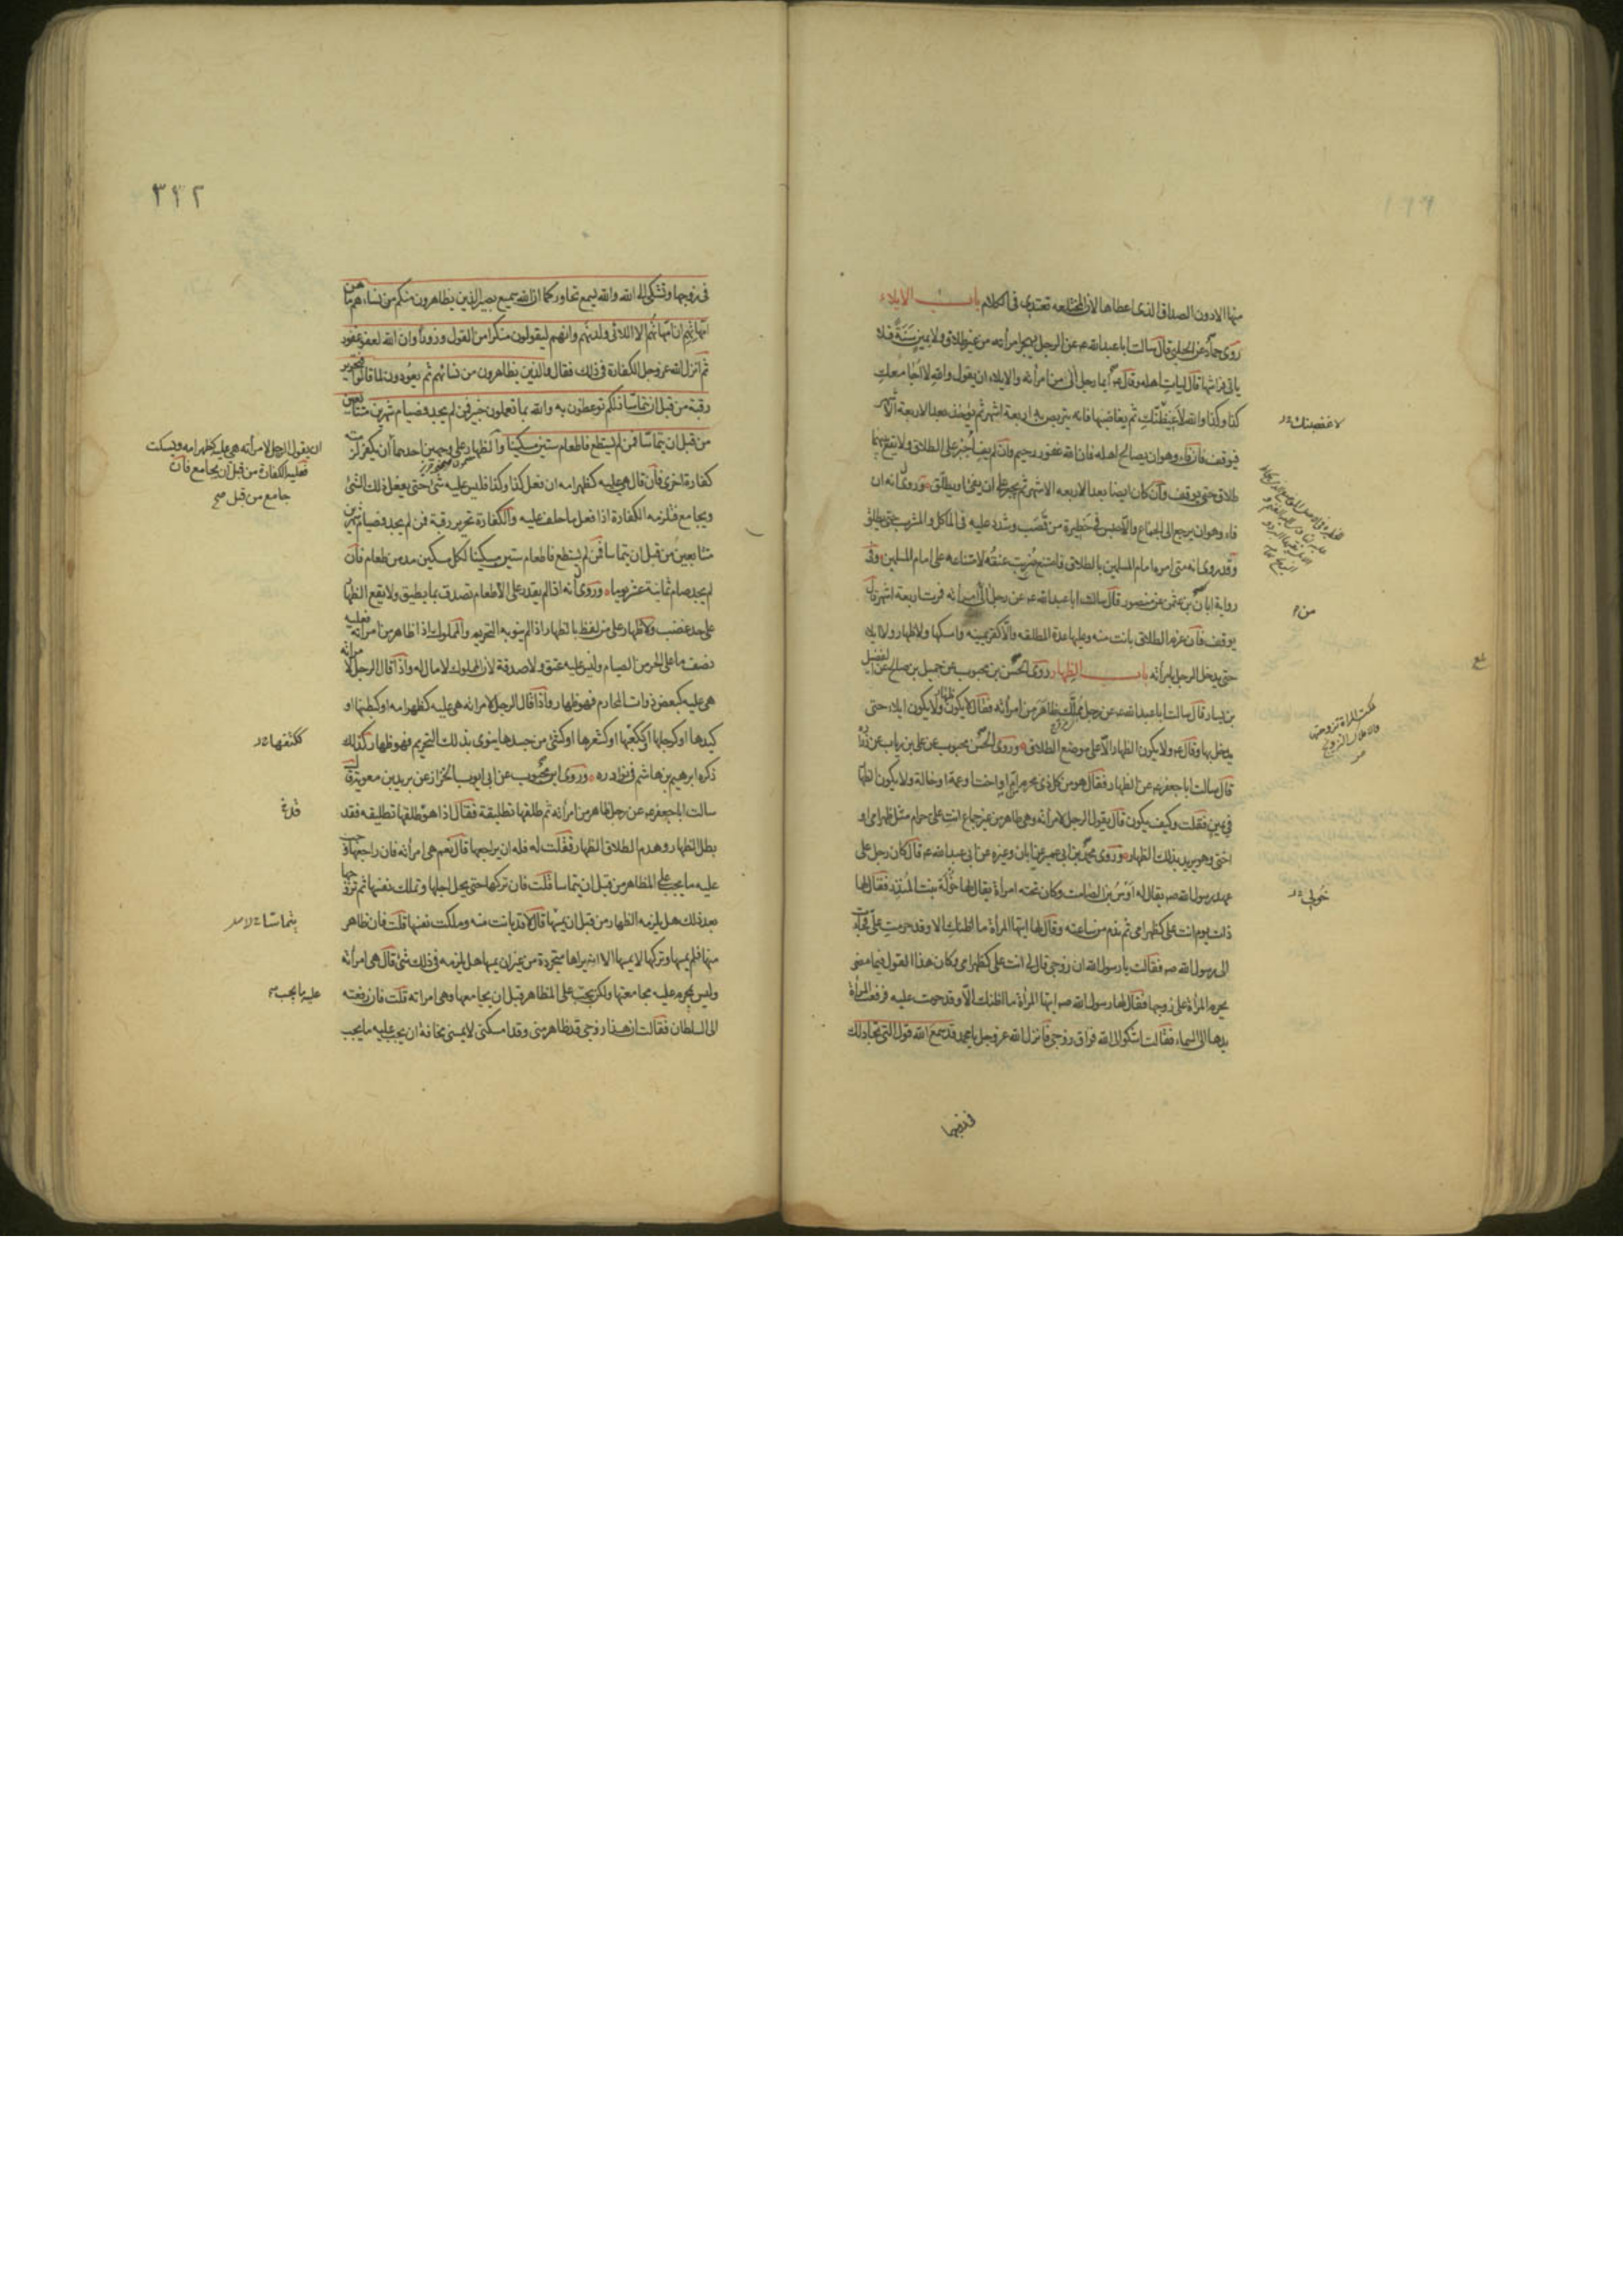 منها الا دون الصداق الذى اعطاها لان المختلعه تعتدى فى الكلام باب الايلاء
روى حماد عن الحلبى قال سالت ابا عبدالله عم عن الرجل يهجر امرأته من غير طلاق ولا يمين سَنَةً فلا
ياتى فراشها قال ليات اهله وقال عم ايما رجل آلى من امرأته والايلاء ان يقول والله لا اجامعك
كذا وكذا والله لاغيظنّك ثم يغاضبها فانه يتربص به اربعة اشهر ثم يؤخذ بعد الاربعة الاشهر
فيوقف فان فاء وهو ان يصالح اهله فان الله غفور رحيم وان لم يفئ اُجبِرَ على الطلاق ولا يقع بينهما
طلاق حتى يوقف وان كان ايضا بعد الاربعه الاشهر ثم يجبر على ان يفئ او يطلق وروى انه ان
فاء وهو ان يرجع الى الجماع والا حبس فى حظيرة من قصب وشدد عليه فى الماكل والمشرب حتى يطلق
وقد روى انه متى امره امام المسلمين بالطلاق فامتنع ضُرِبَ عنقُه لامتناعه على امام المسلمين وفى
رواية ابان بن عثمن عن منصور قال سالت ابا عبدالله عم عن رجل آلى من امرأته فمرت اربعة اشهر قال
يوقف فان عزم الطلاق بانت منه وعليها عدة المطلقه والا كفّر يمينه وامسكها ولا ظهار ولا ايلاء
حتى يدخل الرجل بامرأته باب الظهار روى الحسن بن محبوب عن جميل بن صالح عن الفضيل
بن يسار قال سالت ابا عبدالله عم عن رجل مملّك ظاهَرَ من امرأته فقال لا يكون ظهار ولا يكون ايلاء حتى
يدخل بها وقال عم ولا يكون الظهار الا على موضع الطلاق وروى الحسن بن محبوب عن على بن رياب عن زرارة
قال سالت ابا جعفر عم عن الظهار فقال هو من كل ذى محرم ام او اخت او عمة او خالة ولا يكون الظهار
فى يمين فقلت وكيف يكون قال يقول الرجل لامرأته وهى طاهر من غير جماع انتِ على حرام مثل ظهر امى او
اختى وهو يريد بذلك الظهار وروى محمد بن ابى عمير عن ابان وغيره عن ابى عبدالله عم قال كان رجل على
عهد رسول الله صم يقال له اَوْسُ بن الصامت وكان تحته امراة يقال لها خولة بنت المنذر فقال لها
ذات يوم انت على كظهر امى ثم ندم من ساعته وقال لها ايتها المراة ما اظنك الا وقد حرمتِ علىّ فجاءت
الى رسول الله صم فقالت يا رسول الله ان زوجى قال لى انت على كظهر امى وكان هذا القول فيما مضى
يحرم المرأة على زوجها فقال لها رسول الله صم ايتها المرأة ما اظنك الّا وقد حرمت عليه فرفعت المرأة
يدها الى السماء فقالت اشكو الى الله فراق زوجى فانزل الله عز وجل يا محمد قد سمع الله قول التى تجادلك
لاغضبنك
من
خولى
فى زوجها
٣٢٢
فى زوجها وتشتكى الى الله والله يسمع تحاوركما ان الله سميع بصير الذين يظاهرون منكم من نسائهم ما هن
امّهاتهم ان امّهاتُهُم الا اللائى ولدنهم وانهم ليقولون منكرا من القول وزوراً وان الله لعفو غفور
ثم انزل الله عز وجل الكفارة فى ذلك فقال والذين يظاهرون من نسائهم ثم يعودون لما قالوا فتحرير
رقبة من قبل ان يتماسّا ذلكم توعظون به والله بما تعملون خبير فمن لم يجد فصيام شهرين متتابعين
من قبل ان يتماسّا فمن لم يستطع فاطعام ستين مسكينا والظهار على وجهين احدهما
كفارة اخرى فان قال هى عليه كظهر امه ان فعل كذا وكذا فليس عليه شئ حتى يفعل ذلك الشئ
ويجامع فتلزمه الكفارة اذا فعل ما حلف عليه والكفارة تحرير رقبة فمن لم يجد فصيام شهرين
متتابعين من قبل ان يتماسا فمن لم يستطع فاطعام ستين مسكينا لكل مسكين مد من طعام فان
لم يجد صام ثمانية عشر يوما وروى انه اذا لم يقدر على الاطعام تصدق بما يطيق ولا يقع الظهار
على حد غضب ولا ظهار على من لفظ بالظهار اذا لم ينو به التحريم والمملوك اذا ظاهر من امرأته فعليه
نصف ما على الحر من الصيام وليس عليه عتق ولا صدقة لان المملوك لا مال له واذا قال الرجل لامرأته
هى عليه كبعض ذوات المحارم فهو ظهار واذا قال الرجل لامرأته هى عليه كظهر امه او كبطنها او
كيدها او كرجلها او ككعبها او كشعرها او كشئ من جسدها ينوى بذلك التحريم فهو ظهار كذلك
ذكره ابرهيم بن هاشم فى نوادره وروى ابن محبوب عن ابى ايوب الخزاز عن بريد بن معوية قال
سالت ابا جعفر عم عن رجل ظاهر من امرأته ثم طلقها تطليقة فقال اذا هو طلقها تطليقه فقد
بطل الظهار وهدم الطلاق الظهار فقلت له فله ان يراجعها قال نعم هى امرأته فان راجعها وجب
عليه ما يجب على المظاهر من قبل ان يتماسا قلت فان تركها حتى يحل اجلها وتملك نفسها ثم تزوجها
بعد ذلك هل يلزمه الظهار من قبل ان يمسّها قال لا قد بانت منه وملكت نفسها قلت فان ظاهر
منها فلم يمسها وتركها لا يمسها الا انه يراها متجردة من غير ان يمسها هل يلزمه فى ذلك شئ قال هى امرأته
وليس يحرم عليه مجامعتها ولكن يجب على المظاهر قبل ان يجامعها وهى امراته قلت فان رفعته
الى السلطان فقالت ان هذا زوجى قد ظاهر منى وقد امسكنى لا يمسنى مخافة ان يجب عليه ما يجب
ان يقول الرجل لامرأته هى عليه كظهر امه ويسكت
فعليه الكفارة من قبل ان يجامع فان
جامع من قبل
ككتفها
يتماسا
عليه ما يجب